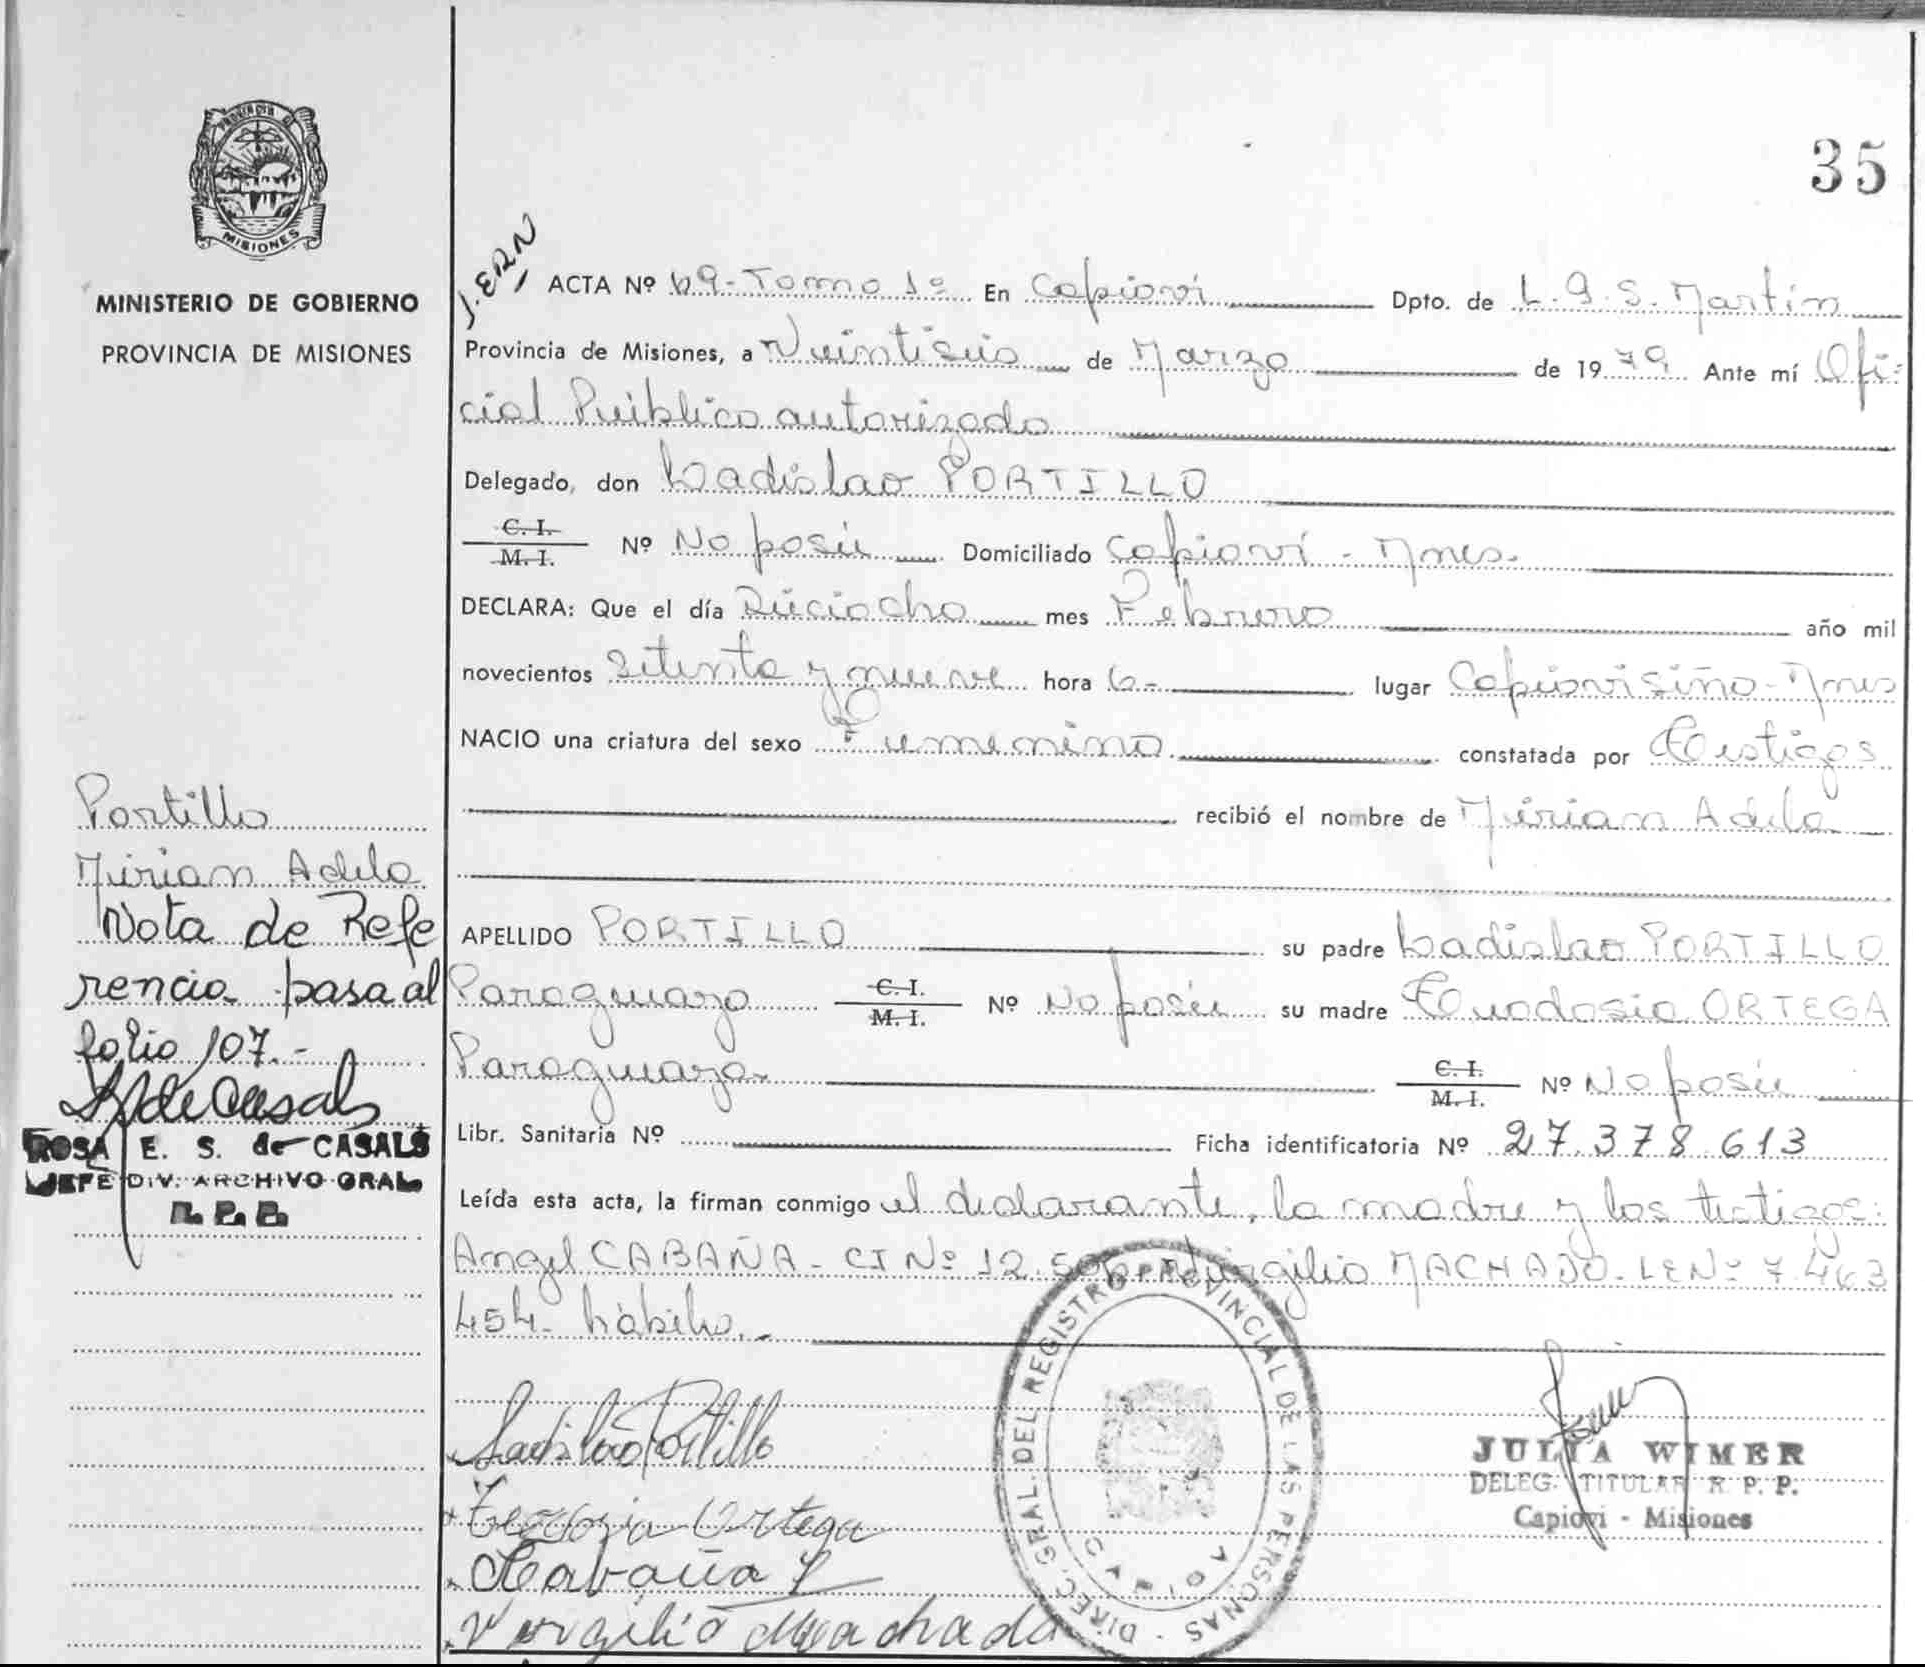 35
PROVINCIA D
MISIONES
MINISTERIO DE GOBIERNO
PROVINCIA DE MISIONES
J. ERN
ACTA Nº 69-Tomo 1º En Capioví Dpto. de L.G.S. Martín
Provincia de Misiones, a Veintiseis de Marzo de 1979 Ante mí Ofi-
cial Público autorizado
Delegado, don Ladislao PORTILLO
C. I.
M. I. Nº No posee Domiciliado Capioví - Mnes.
DECLARA: Que el día Dieciocho mes Febrero año mil
novecientos setenta y nueve hora 6- lugar Capiovisiño-Mnes
NACIO una criatura del sexo Femenino constatada por Testigos
recibió el nombre de Miriam Adela
APELLIDO PORTILLO su padre Ladislao PORTILLO
Paraguayo C. I.
M. I. Nº No posee su madre Teodosia ORTEGA
Paraguaya- C. I.
M. I. Nº No posee
Libr. Sanitaria Nº Ficha identificatoria Nº 27.378.613
Leída esta acta, la firman conmigo el declarante, la madre y los testigos:
Angel CABAÑA - CI Nº 12.50 Virgilio MACHADO-LE Nº 7.463
454- hábiles.-
Portillo
Miriam Adela
Nota de Refe
rencia pasa al
folio 107.-
R de Casals
ROSA E. S. de CASALS
JEFE DIV. ARCHIVO GRAL
R. P. P.
Ladislao Portillo
Ortega
Cabaña
Virgilio Machado
DIREC. GRAL. DEL REGISTRO PROVINCIAL DE LAS PERSONAS
CAPIOVI
JULIA WIMER
DELEG. TITULAR R. P. P.
Capioví - Misiones